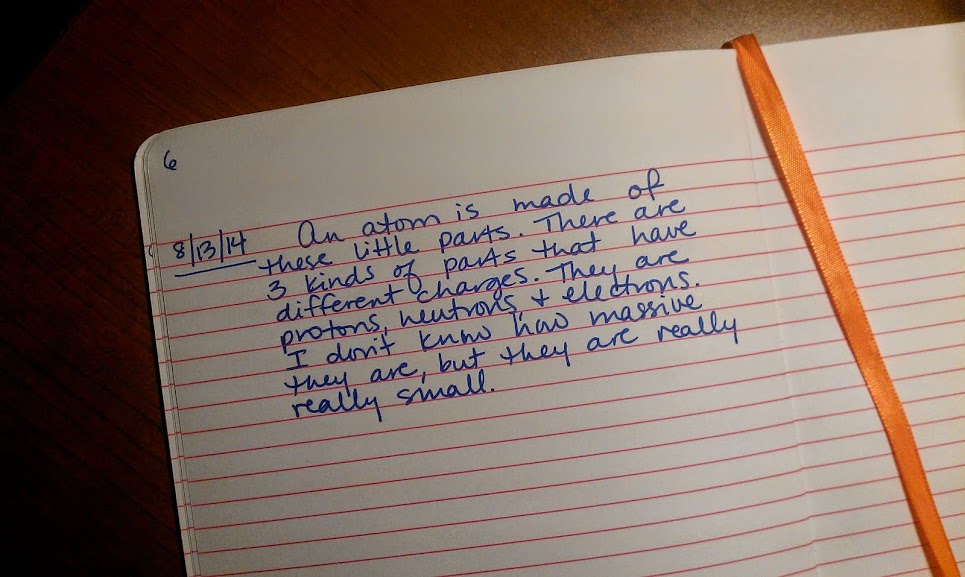 6
8/13/14 An atom is made of
these little parts. There are
3 kinds of parts that have
different charges. They are
protons, neutrons, + electrons.
I don't know how massive
they are, but they are really
really small.